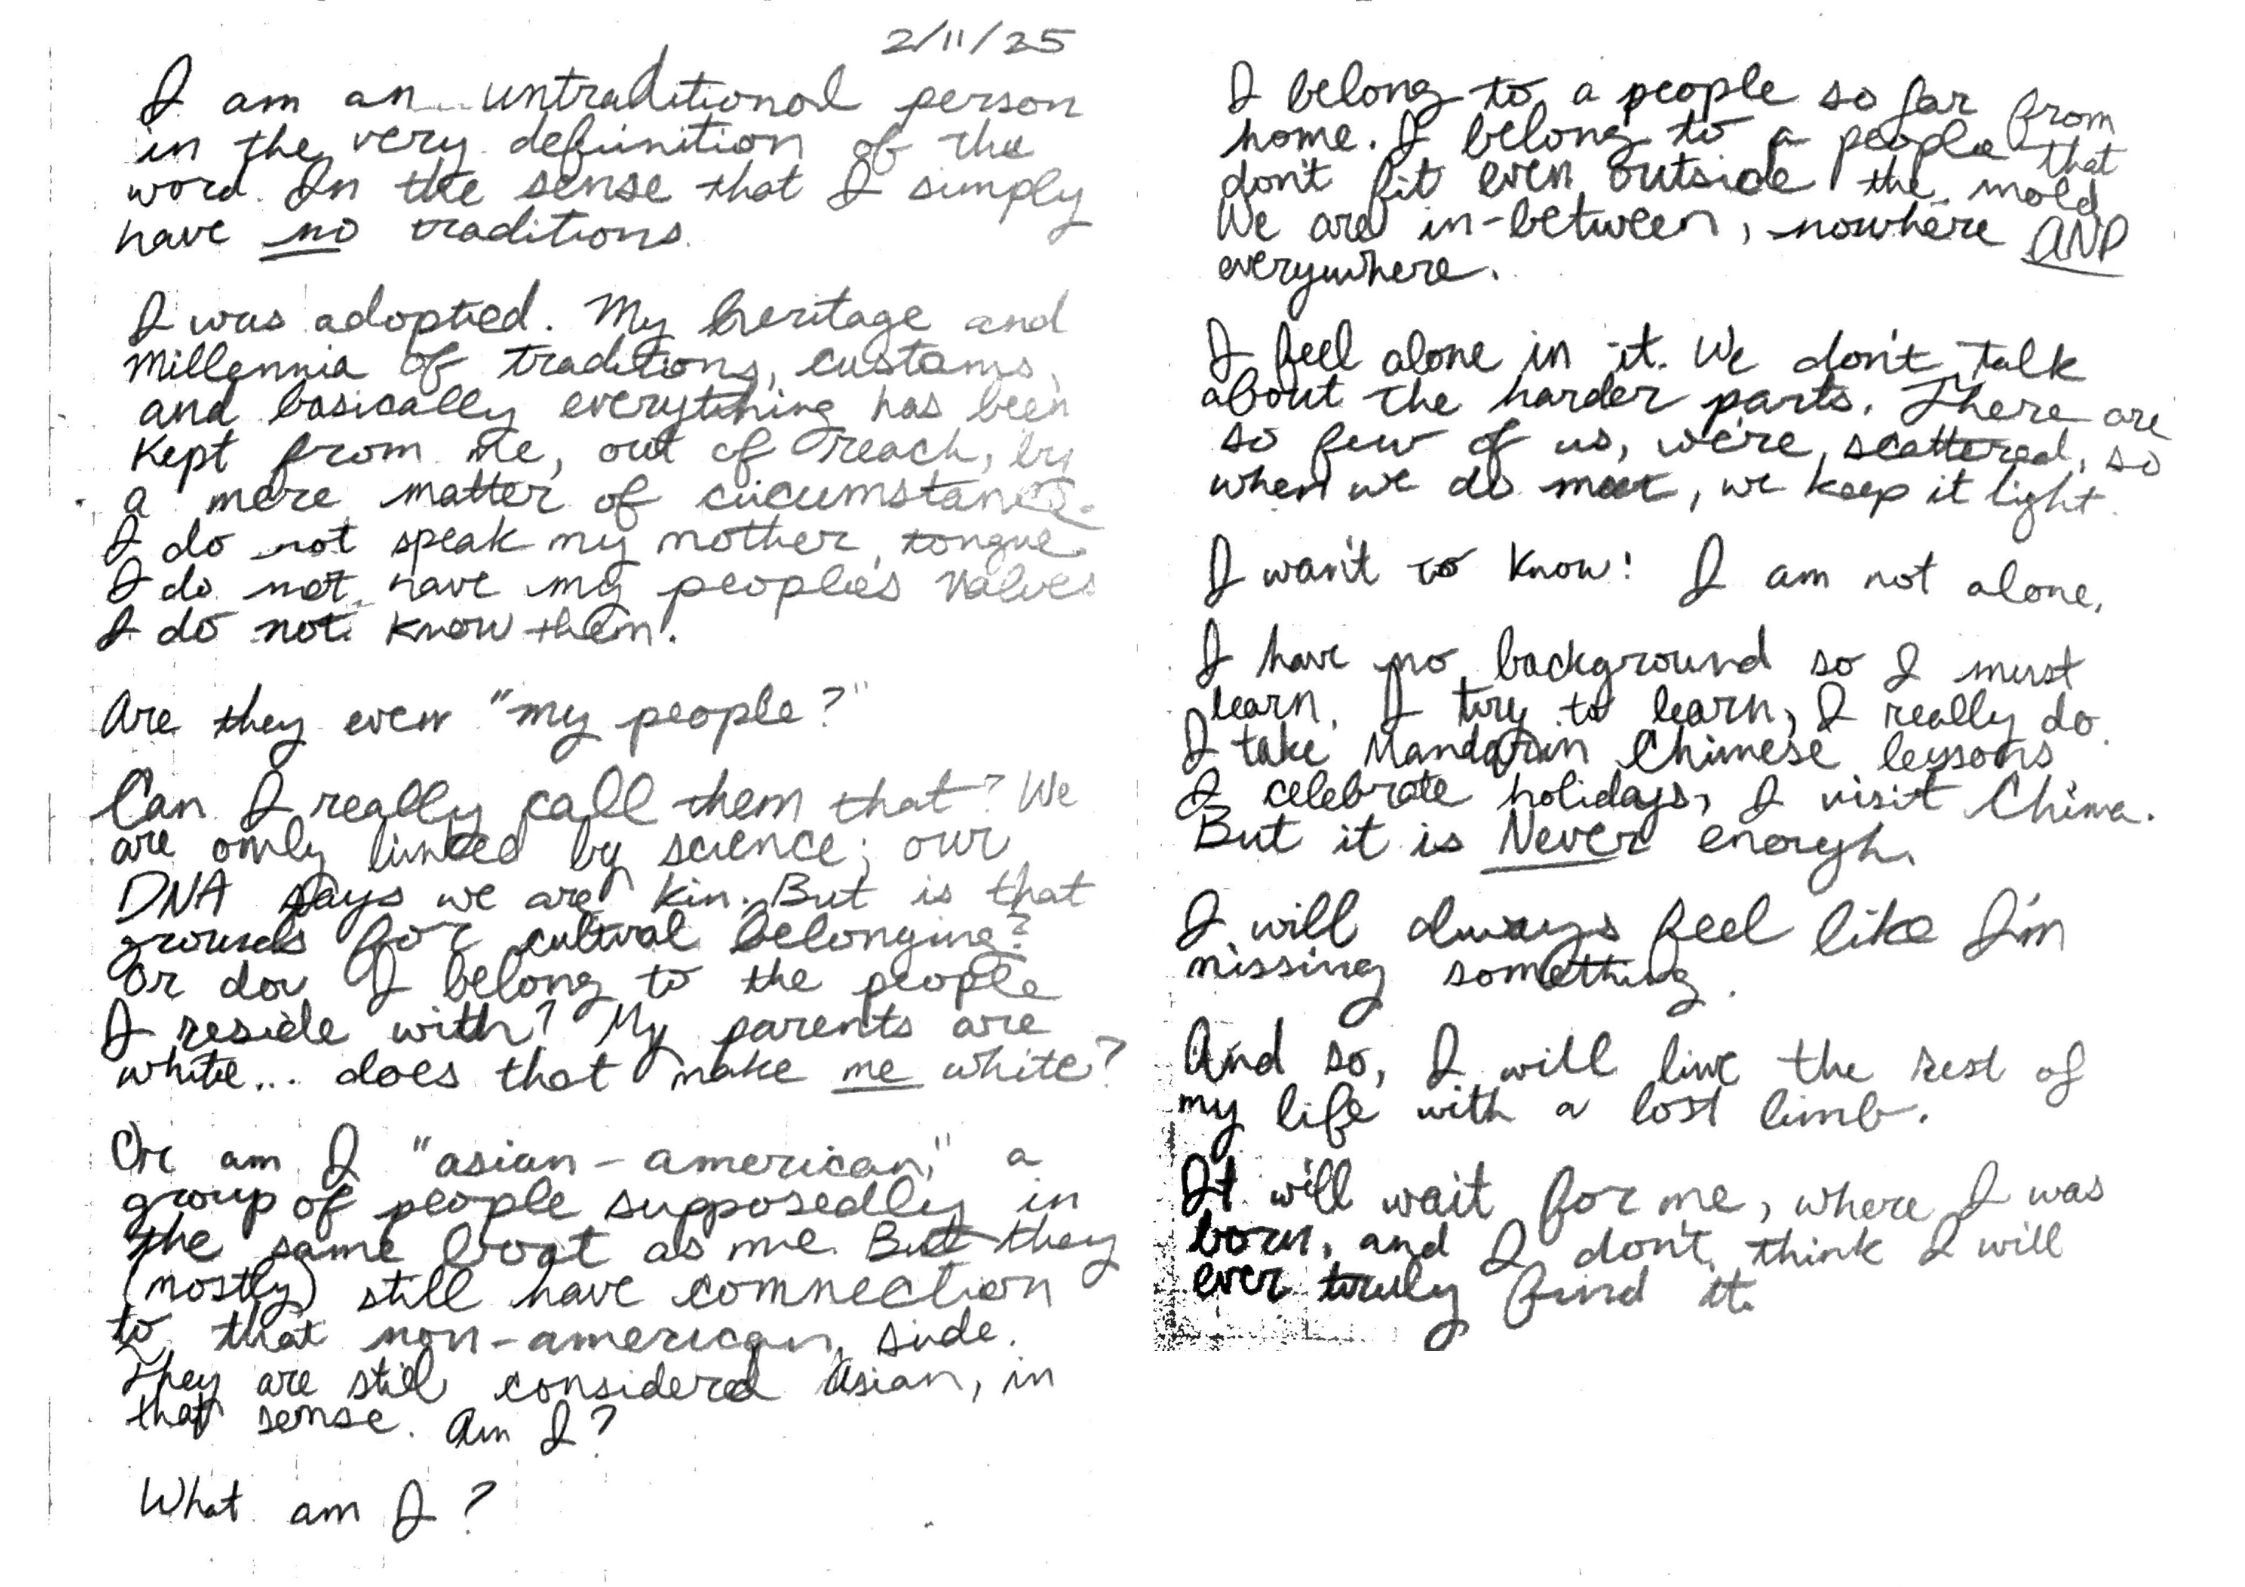 2/11/25
I am an untraditional person
in the very definition of the
word. In the sense that I simply
have no traditions.
I was adopted. My heritage and
Millennia of traditions, customs,
and basically everything has been
kept from me, out of reach, by
a mere matter of circumstance.
I do not speak my mother tongue
I do not have my people's values
I do not know them.
Are they even "my people?"
Can I really call them that? We
are only linked by science; our
DNA says we are kin. But is that
grounds for cultural belonging?
Or do I belong to the people
I reside with? My parents are
white... does that make me white?
Or am I "asian-american," a
group of people supposedly in
the same boat as me. But they
(mostly) still have connection
to that non-american side.
They are still considered Asian, in
that sense. Am I?
What am I?
I belong to a people so far from
home. I belong to a people that
don't fit even outside the mold
We are in-between, nowhere AND
everywhere.
I feel alone in it. We don't talk
about the harder parts. There are
so few of us, we're scattered, so
when we do meet, we keep it light.
I want to know: I am not alone.
I have no background so I must
learn. I try to learn, I really do.
I take Mandarin Chinese lessons
I celebrate holidays, I visit China.
But it is Never enough.
I will always feel like I'm
missing something.
And so, I will live the rest of
my life with a lost limb.
It will wait for me, where I was
born, and I don't think I will
ever truly find it.